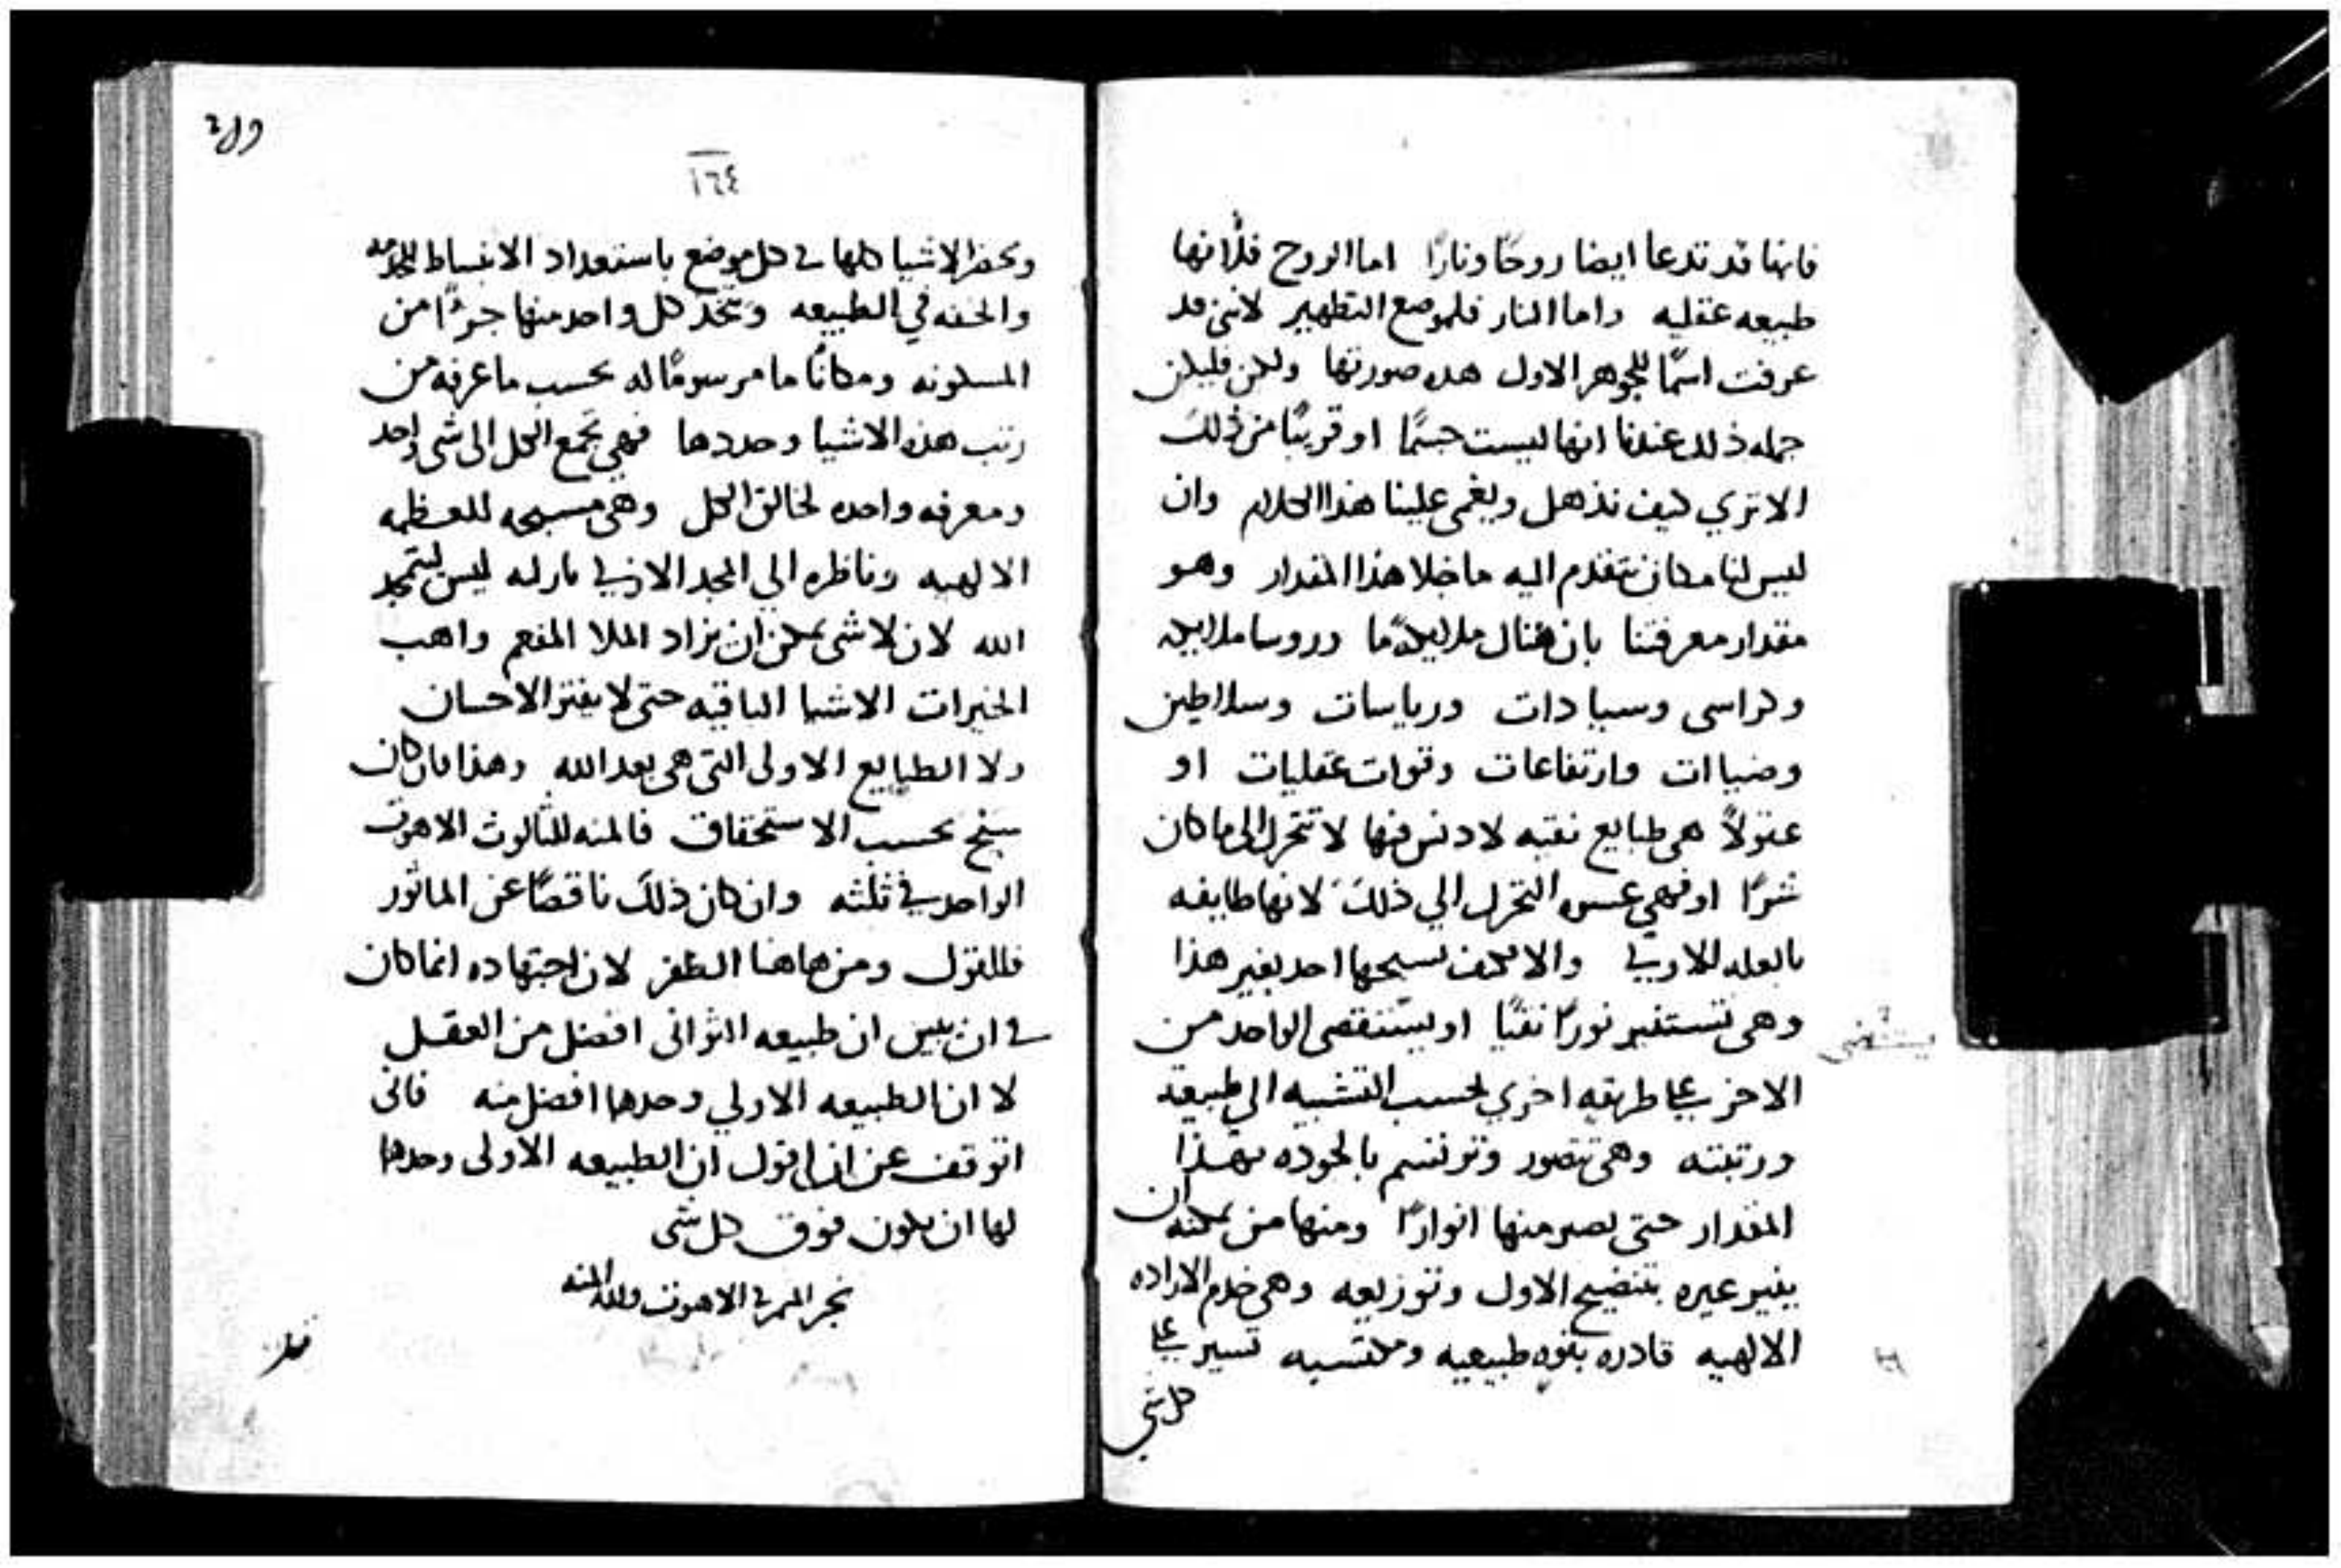 فانها قد تدعا ايضا روحًا ونارًا اما الروح فلأنها
طبيعه عقليه واما النار فلموضع التطهير لانني قد
عرفت اسمًا للجوهر الاول هذه صورتها ولكن فليكن
جمله ذلك عندنا انها ليست جسمًا او قريبًا من ذلك
الا تري كيف نذهل ويغمى علينا هذا الكلام وان
ليس لنا مكان نتقدم اليه ما خلا هذا المقدار وهو
مقدار معرفتنا بان هناك ملايكةً ما وروسا ملايكه
وكراسي وسيادات ورياسات وسلاطين
وضياات وارتفاعات وقوات عقليات او
عقولاً هي طبايع نقيه لا دنس فيها لا تتحرك الى ما كان
شرًا او فهي عسره التحرك الي ذلك لانها طايفه
بالعله الاولي والا فكيف يسبحها احد بغير هذا
وهي تستنير نورًا نقيًا او يستنقصى الواحد من
يستضى
الاخر علي طريقه اخري بحسب التشبيه الي طبيعته
ورتبته وهي تتصور وترتسم بالجوده بهذا
المقدار حتى يصير منها انوارًا ومنها من يمكنه ان
ينير غيره بتنضيح الاول وتوزيعه وهي خدم الاراده
الالهيه قادره بقوه طبيعيه ومكتسبه تسير علي
كل شي
١٦٤
وتحضر الاشيا كلها في كل موضع باستعداد الانبساط للخدمه
والخفه في الطبيعه ويتخذ كل واحد منها جزًا من
المسكونه ومكانًا ما مرسومًا له بحسب ما عرفه من
رتب هذه الاشيا وحددها فهي تجمع الكل الى شي واحد
ومعرفه واحده لخالق الكل وهي مسبحه للعظمه
الالهيه وناظره الي المجد الازلي ليس ليتمجد
الله لان لا شي يمكن ان يزاد الملا المنعم واهب
الخيرات الاشيا الباقيه حتى لا يفتر الاحسان
ولا الطبايع الاولى التي هي بعد الله وهذا فان كان
سبح بحسب الاستحقاق فالمنه للثالوث الاهوت
الواحد في ثلثه وان كان ذلك ناقصًا عن الماثور
فللقول ومن هاهنا الظفر لان اجتهاده انما كان
في ان يبين ان طبيعه الثواني افضل من العقل
لا ان الطبيعه الاولي وحدها افضل منه فاني
اتوقف عن ان اقول ان الطبيعه الاولى وحدها
لها ان يكون فوق كل شي
نجز الميمر في الاهوت ولله المنه